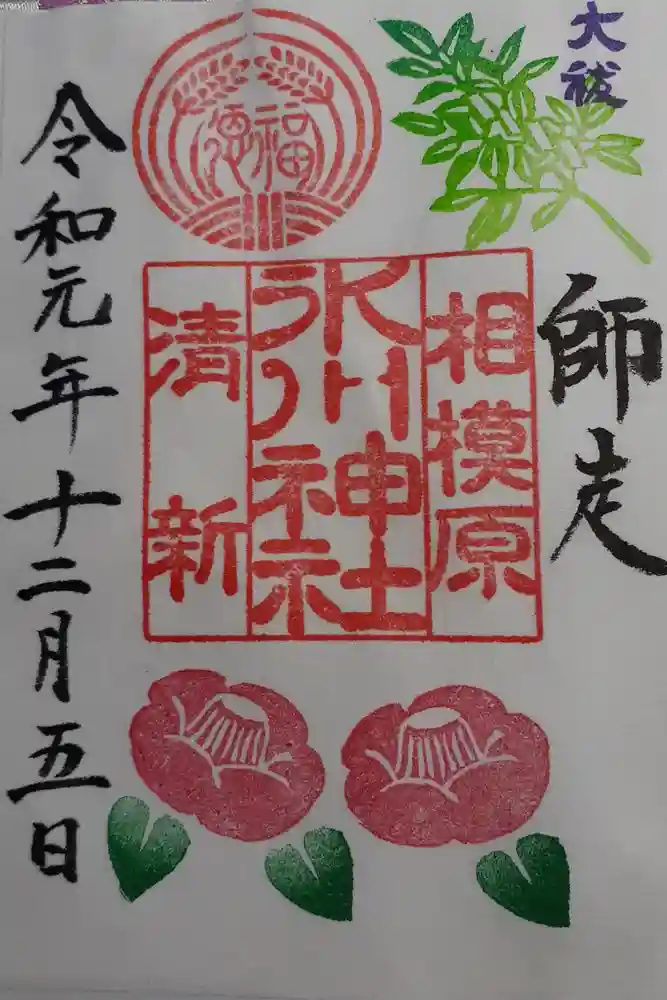 大祓
師走
相模原
氷川神社
清新
福徳
令和元年十二月五日